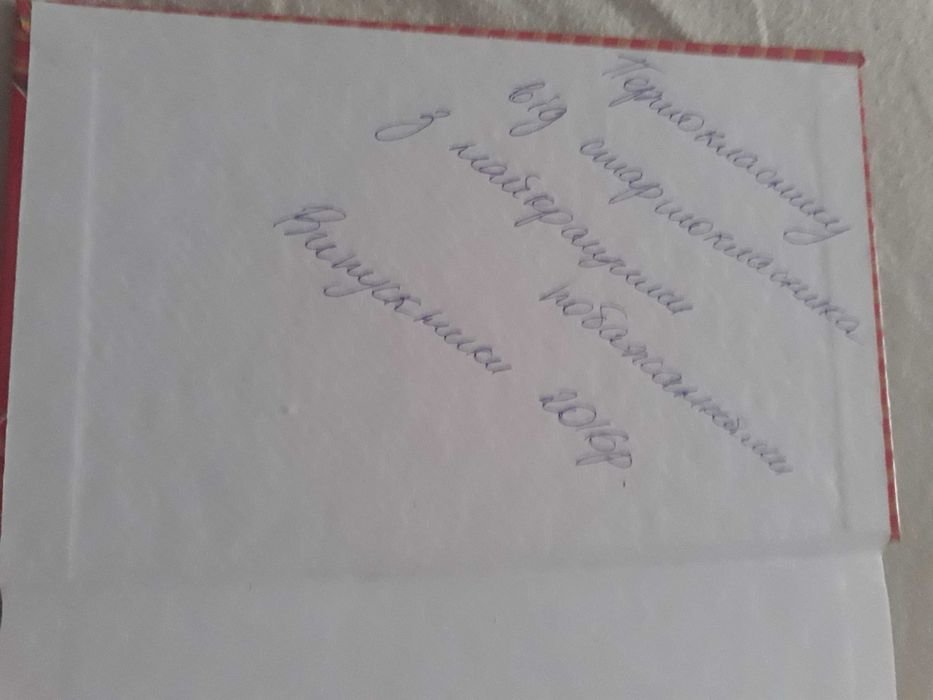 Першокласнику
від старшокласника
З найкращими
побажаннями
Випускники 2016р.